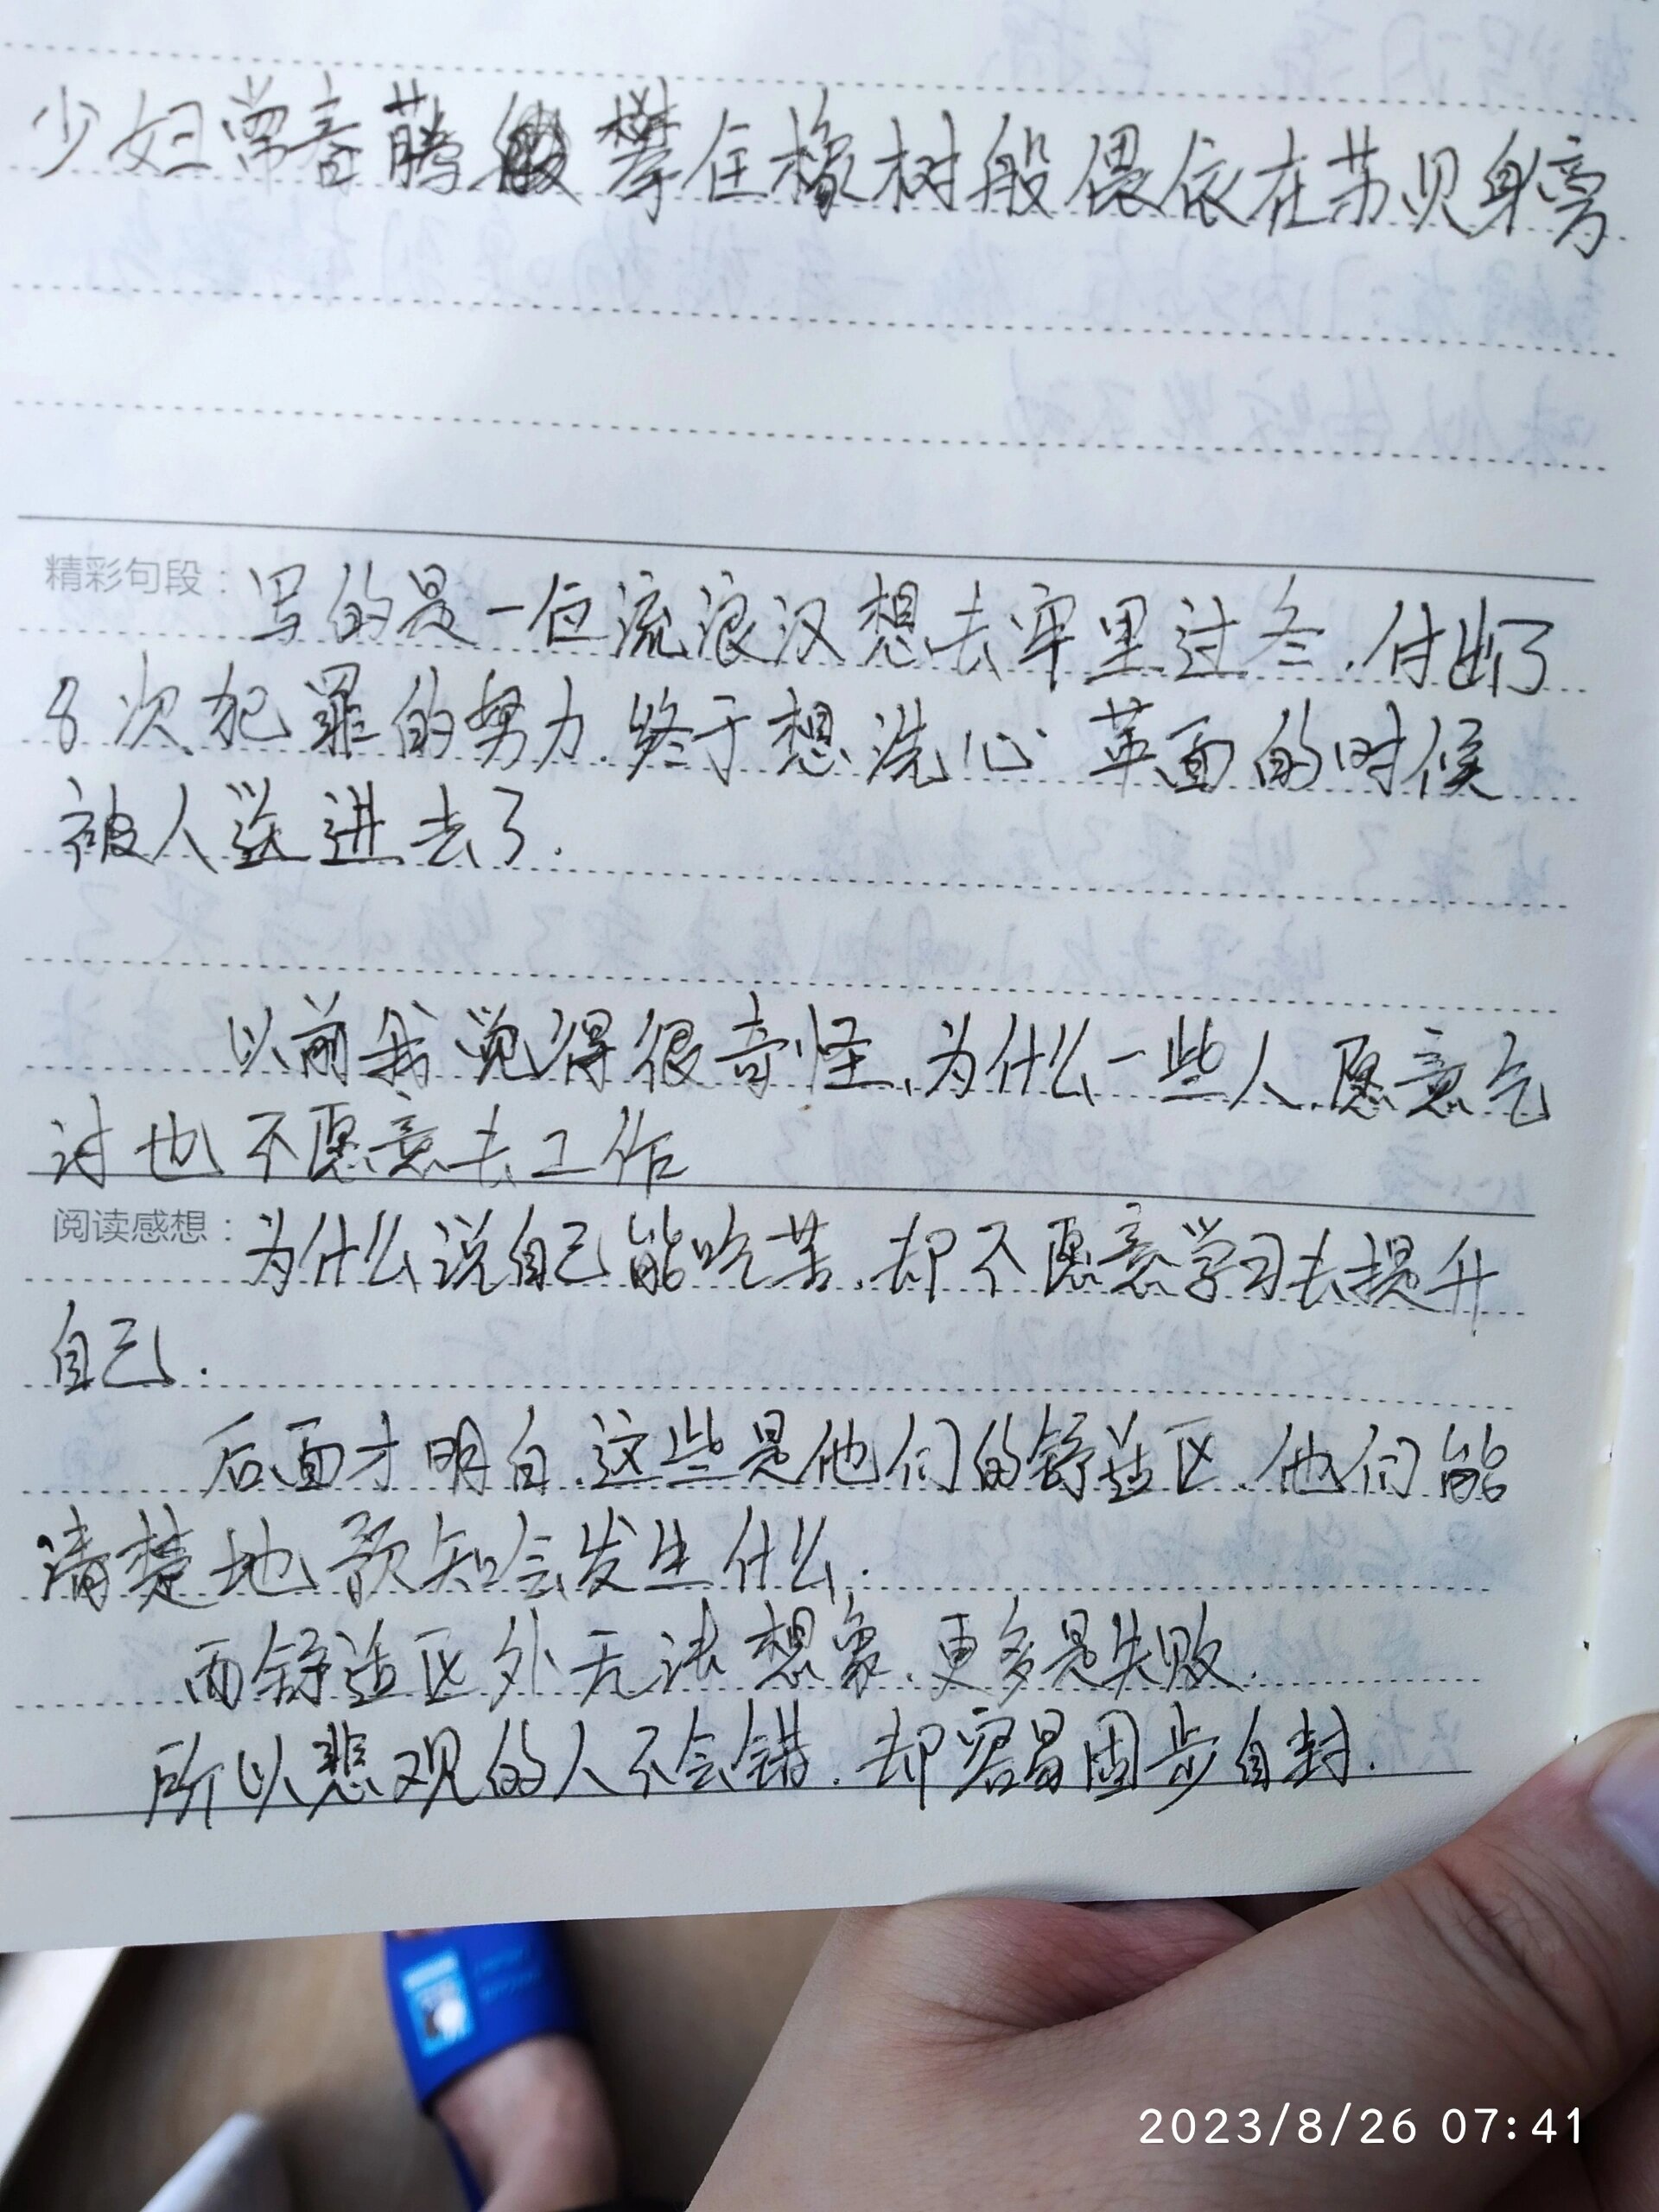 少妇常春藤攀住橡树般偎依在苏贝身旁
精彩句段：写的是一位流浪汉想去牢里过冬,付出了
8次犯罪的努力.终于想洗心革面的时候
被人送进去了.
以前我觉得很奇怪,为什么一些人愿意乞
讨也不愿意去工作
阅读感想：为什么说自己能吃苦,却不愿意学习去提升
自己.
后面才明白.这些是他们的舒适区.他们能
清楚地预知会发生什么.
而舒适区外无法想象.更多是失败.
所以悲观的人不会错.却容易固步自封.
2023/8/26 07:41